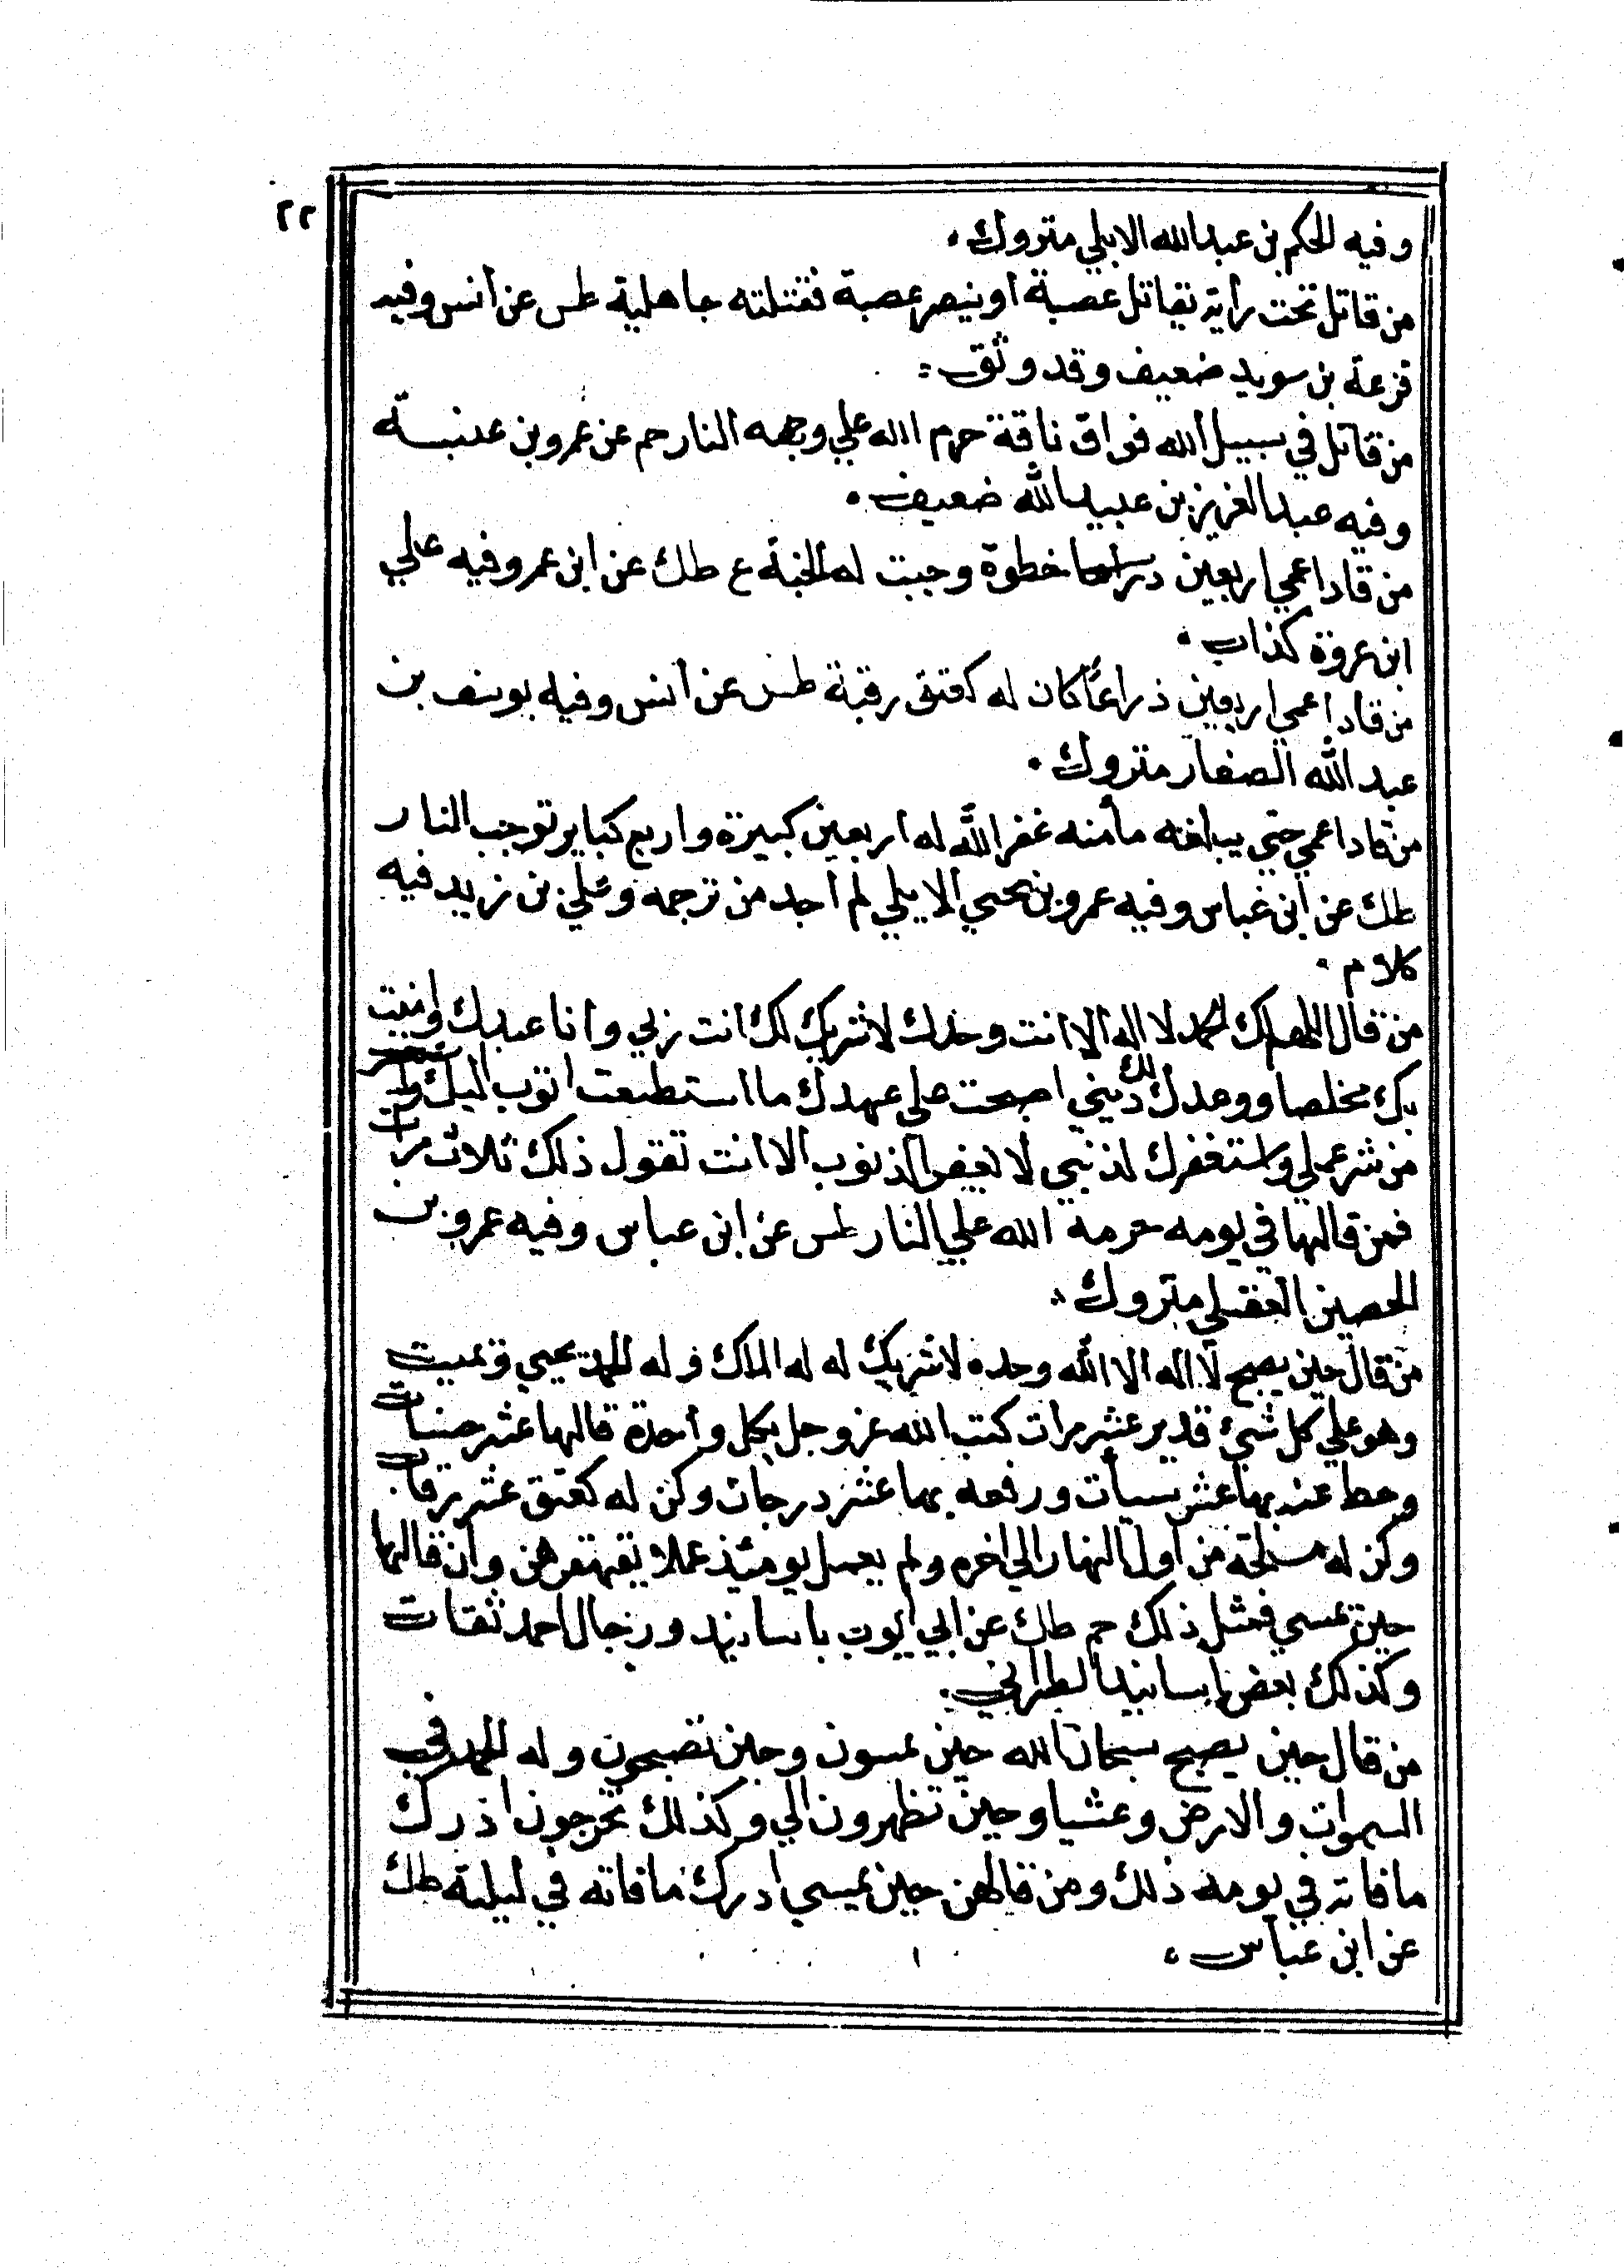 ٢٢
وفيه الحكم بن عبد الله الايلي متروك.
من قاتل تحت راية يقاتل عصبة او ينصر عصبة فقتلته جاهلية طس عن انس وفيه
قزعة بن سويد ضعيف وقد وثق
من قاتل في سبيل الله فواق ناقة حرم الله علي وجهه النار حم عن عمرو بن عنبسة
وفيه عبد العزيز بن عبيد الله ضعيف.
من قاد اعمي اربعين خطوة وجبت له الجنة ع طك عن ابن عمر وفيه علي
ابن عروة كذاب.
من قاد اعمي اربعين ذراعًا كان له كعتق رقبة طس عن انس وفيه يوسف بن
عبد الله الصفار متروك.
من قاد اعمي حتي يبلغه مأمنه غفر الله له اربعين كبيرة واربع كباير توجب النار
طك عن ابن عباس وفيه عمرو بن يحيي الايلي لم اجد من ترجمه وعلي بن زيد فيه
كلام.
من قال اللهم لك الحمد لا اله الا انت وحدك لا شريك لك انت ربي وانا عبدك وامنت
بك مخلصا ووعدك لك ديني اصبحت علي عهدك ما استطعت اتوب اليك
من شر عملي واستغفرك لذنبي لا يغفر الذنوب الا انت تقول ذلك ثلاث مرات
فمن قالها في يومه حرمه الله علي النار طس عن ابن عباس وفيه عمرو بن
الحصين العقيلي متروك.
من قال حين يصبح لا اله الا الله وحده لا شريك له له الملك وله الحمد يحيي ويميت
وهو علي كل شيئ قدير عشر مرات كتب الله عز وجل بكل واحدة قالها عشر حسنات
وحط عنه بها عشر سيأت ورفعه بها عشر درجات وكن له كعتق عشر رقاب
وكن له مسلحة من اول النهار الي اخره ولم يعمل يومئذ عملا يقهرهن وان قالها
حين يمسي فمثل ذلك حم طك عن ابي ايوب باسانيد ورجال احمد ثقات
وكذلك بعض اسانيد الطبراني.
من قال حين يصبح سبحان الله حين تمسون وحين تصبحون وله الحمد في
السموات والارض وعشيا وحين تظهرون الي وكذلك تخرجون ادرك
ما فاته في يومه ذلك ومن قالهن حين يمسي ادرك ما فاته في ليلته طك
عن ابن عباس.